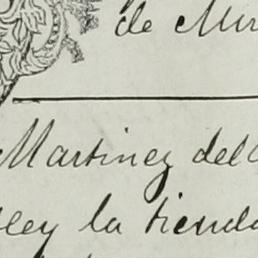 de Mir
Martinez del
ley la tienda